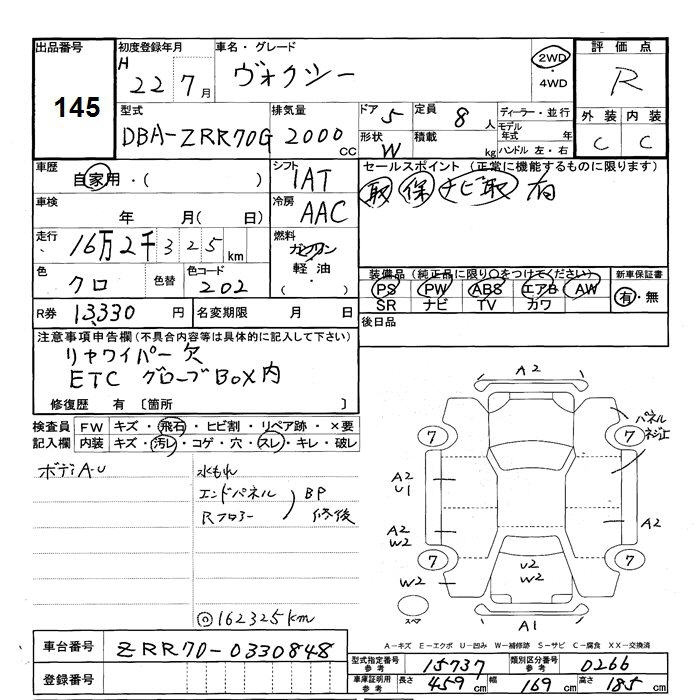 出品番号
145
初度登録年月
H 22 7月
車名・グレード
ヴォクシー
2WD
・4WD
評価点
R
外装 内装
C C
型式
DBA-ZRR70G
排気量
2000 CC
ドア 5
定員 8 人
形状 W
積載 kg
ディーラー・並行
モデル年式 年
ハンドル 左・右
車歴
自家用・( )
シフト
1AT
セールスポイント (正常に機能するものに限ります)
取 保 ナビ取 有
車検
年 月( 日)
冷房
AAC
走行
16万2千325km
燃料
ガソリン
・軽油・
色
クロ
色替
色コード
202
装備品(純正品に限り○をつけてください)
PS PW ABS エアB AW
SR ナビ TV カワ
新車保証書
有・無
R券 13,330 円
名変期限 月 日
後日品
注意事項申告欄(不具合内容等は具体的に記入して下さい)
リヤワイパー欠
ETC グローブBOX内
修復歴 有〔箇所 〕
検査員記入欄
FW キズ・飛石・ヒビ割・リペア跡・×要
内装 キズ・汚レ・コゲ・穴・スレ・キレ・破レ
ボディA・U
水もれ
エンドパネル
Rフロアー
BP
修後
◎162325km
A2
7
7
パネル
ネジ止
A2
U1
A2
W2
A2
7
7
W2
U2
W2
スペア
A1
A-キズ E-エクボ U-凹み W-補修跡 S-サビ C-腐食 XX-交換済
車台番号
ZRR70-0330848
登録番号
型式指定番号 参考 15737
類別区分番号 参考 0266
車庫証明用 参考 長さ 459cm 幅 169cm 高さ 185cm